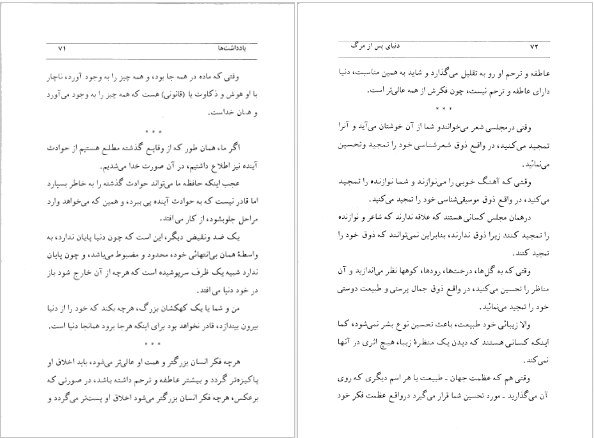 یادداشت‌ها ۷۱
وقتی که ماده در همه جا بود، و همه چیز را به وجود آورد، ناچار
با او هوش و ذکاوت یا (قانونی) هست که همه چیز را به وجود می‌آورد
و همان خداست.
* * *
اگر ما، همان طور که از وقایع گذشته مطلع هستیم از حوادث
آینده نیز اطلاع داشتیم، در آن صورت خدا می‌شدیم.
عجب اینکه حافظه ما می‌تواند حوادث گذشته را به خاطر بسپارد
اما قادر نیست که به حوادث آینده پی ببرد، و همین که می‌خواهد وارد
مراحل جلو بشود، از کار می‌افتد.
یک ضد و نقیض دیگر، این است که چون دنیا پایان ندارد، به
واسطهٔ همان بی‌انتهائی خود، محدود و مضبوط می‌باشد، و چون پایان
ندارد شبیه یک ظرف سرپوشیده است که هرچه از آن خارج شود باز
در خود دنیا می‌افتد.
من و شما یا یک کهکشان بزرگ، هرچه بکند که خود را از دنیا
بیرون بیندازد، قادر نخواهد بود برای اینکه هرجا برود همانجا دنیا است.
* * *
هرچه فکر انسان بزرگتر و همت او عالی‌تر می‌شود، باید اخلاق او
پاکیزه‌تر گردد و بیشتر عاطفه و ترحم داشته باشد، در صورتی که
برعکس، هرچه فکر انسان بزرگتر می‌شود اخلاق او پست‌تر می‌گردد و
۷۲ دنیای پس از مرگ
عاطفه و ترحم او رو به تقلیل می‌گذارد و شاید به همین مناسبت، دنیا
دارای عاطفه و ترحم نیست، چون فکرش از همه عالی‌تر است.
* * *
وقتی در مجلسی شعر می‌خوانند و شما از آن خوشتان می‌آید و آنرا
تمجید می‌کنید، در واقع ذوق شعرشناسی خود را تمجید و تحسین
می‌نمائید.
وقتی که آهنگ خوبی را می‌نوازند و شما نوازنده را تمجید
می‌کنید، در واقع ذوق موسیقی‌شناسی خود را تمجید می‌کنید.
در همان مجلس کسانی هستند که علاقه ندارند که شاعر و نوازنده
را تمجید کنند زیرا ذوق ندارند، بنابراین نمی‌توانند که ذوق خود را
تمجید کنند.
وقتی که به گل‌ها، درخت‌ها، رودها، کوهها نظر می‌اندازید و آن
مناظر را تحسین می‌کنید، در واقع ذوق جمال پرستی و طبیعت دوستی
خود را تمجید می‌نمائید.
والا زیبائی خود طبیعت، باعث تحسین نوع بشر نمی‌شود، کما
اینکه کسانی هستند که دیدن یک منظرهٔ زیبا، هیچ اثری در آنها
نمی‌کند.
وقتی هم که عظمت جهان ـ طبیعت یا هر اسم دیگری که روی
آن می‌گذارید ـ مورد تحسین شما قرار می‌گیرد در واقع عظمت فکر خود